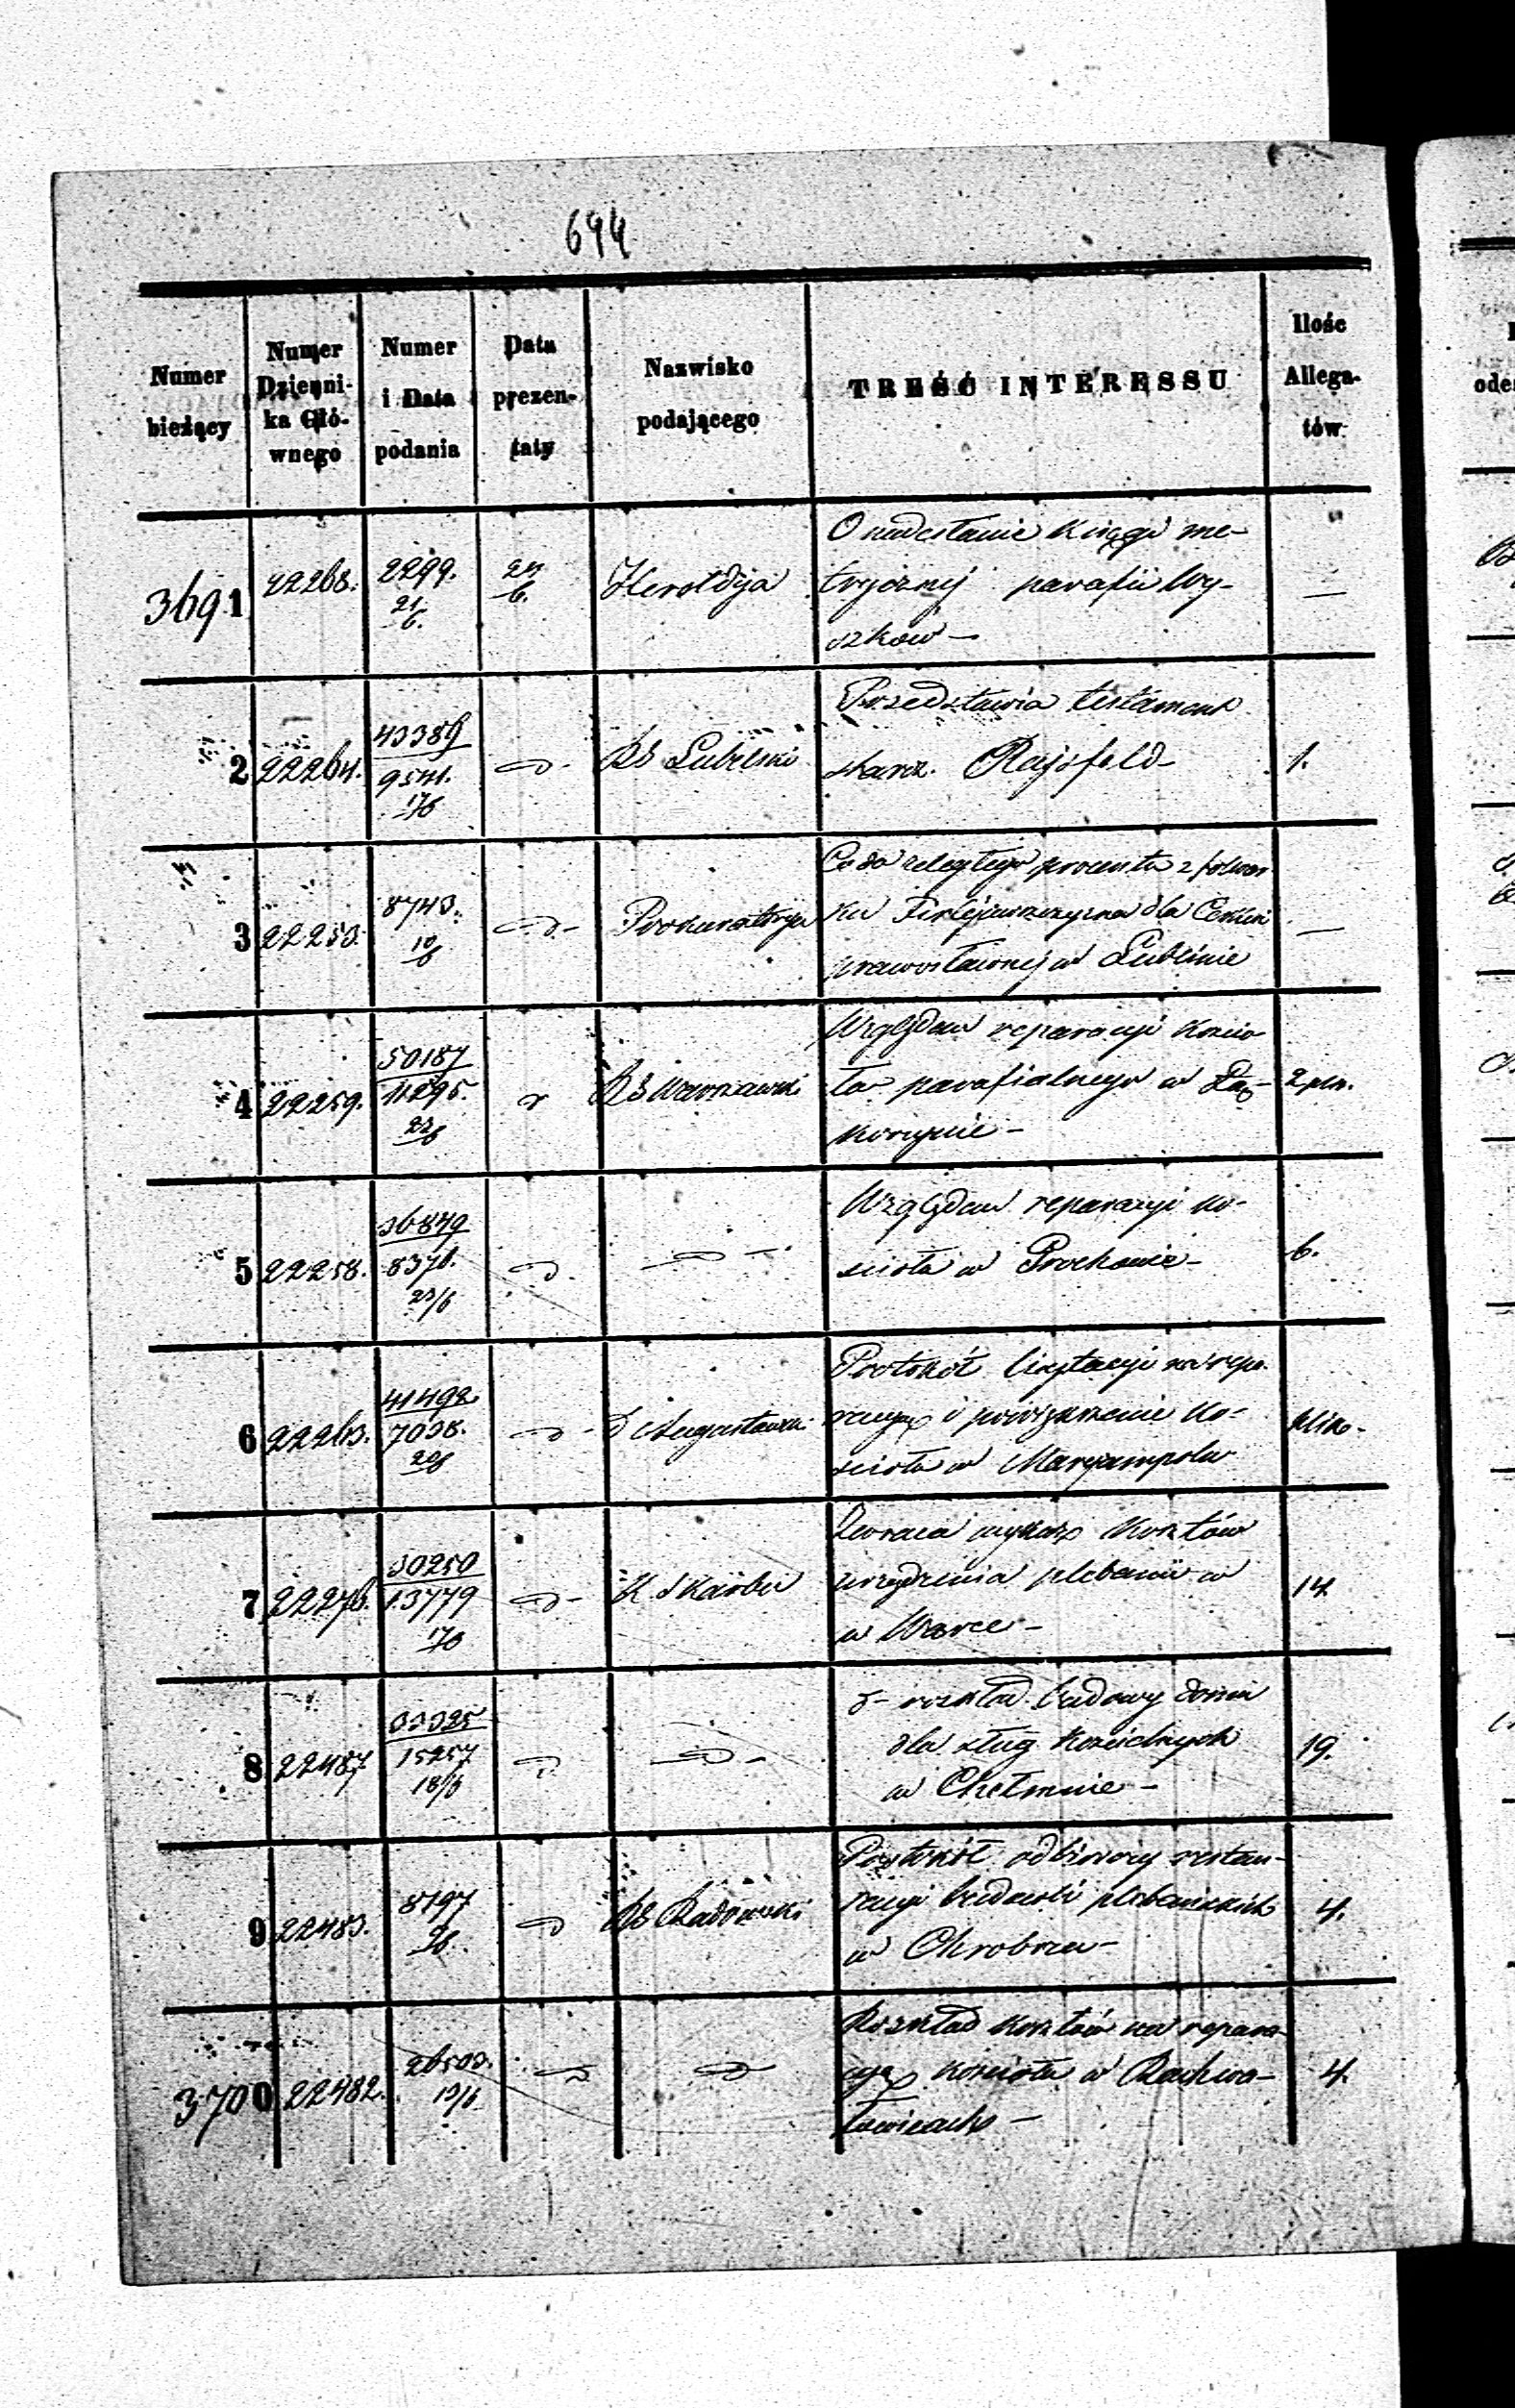 694
Numer bieżący
Numer Dzienni- ka Głó- wnego
Numer i Data podania
Data prezen- taty
Nazwisko podającego
TREŚĆ INTERESSU
Ilość Allega- tów
3691 22268. 2299. 21/6. 24/6. Heroldya
O nadesłanie Księgi me-
trycznej parafii Wy-
szków — —
2 22264. 43389/9541. 17/6 -d- RG Lubelski
Przedstawia testament
skarz. Rajsfeld 1.
3 22250. 8743. 10/6 -d- Prokuratorya
Co do zaległego procentu z folwar-
ku Firlejowszczyzna dla Cerkwi
prawosławnej w Lublinie —
4 22259. 50187/11295. 23/6 d RG Warszawski
Względem reparacyi Kościo-
ła parafialnego w Łę-
korzynie — 2 pln.
5 22258. 36849/8376. 23/6 d -d-
Względem reparacyi ko-
ścioła w Prochowie - 6.
6 22263. 41492/7038. 20/6 -d- D Augustowski
Protokół licytacyi na repa-
racyę i powiększenie Ko-
ścioła w Maryampolu plik-
7 22276. 30250/13779 17/6 -d- K. Skarbu
Zwraca wykaz Kosztów
urządzenia plebanii w
w Warce - 14
8 22487 33325/15257 18/6 d -d-
d- rozkład budowy domu
dla sług Kościelnych
w Chełmnie - 19.
9 22483. 8197 9/6. d RG Radomski
Protokół odbiorczy restau-
racyi budowli plebańskich
w Chrobrzu - 4.
3700 22482. 26503. 13/6 d d
Rozkład kosztów na repara-
cyę kościoła w Racła-
wicach - 4.